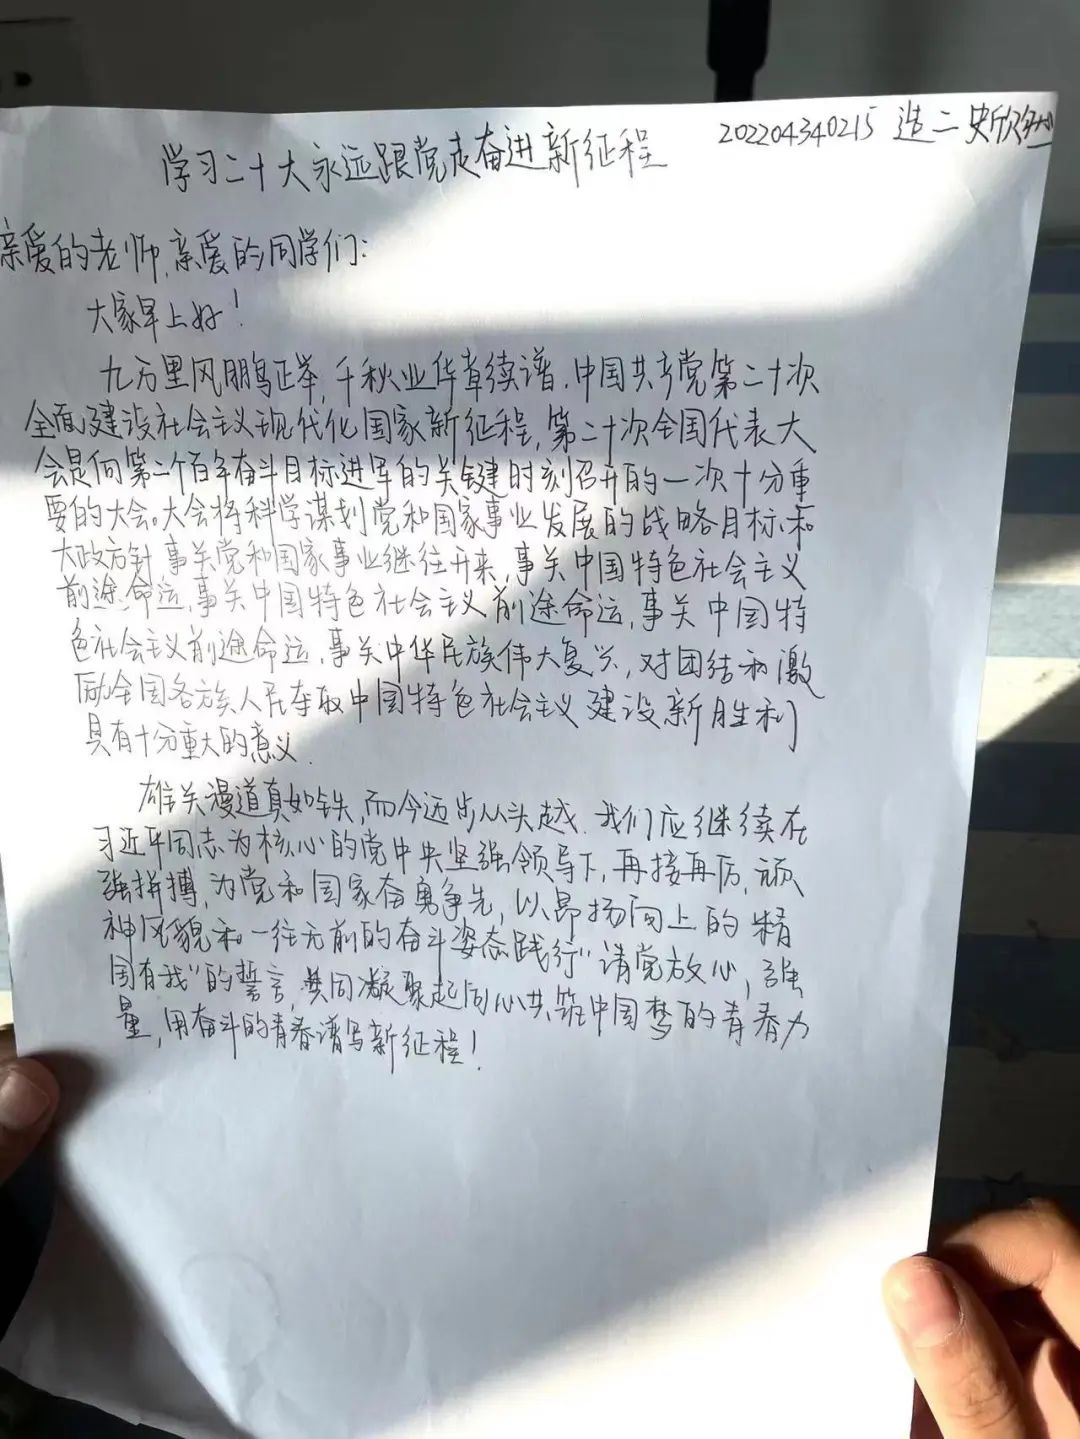 202204340215 造二 史欣
学习二十大永远跟党走奋进新征程
亲爱的老师,亲爱的同学们:
大家早上好!
九万里风鹏正举,千秋业华章续谱.中国共产党第二十次
全面建设社会主义现代化国家新征程,第二十次全国代表大
会是向第二个百年奋斗目标进军的关键时刻召开的一次十分重
要的大会。大会将科学谋划党和国家事业发展的战略目标和
大政方针事关党和国家事业继往开来,事关中国特色社会主义
前途命运,事关中国特色社会主义前途命运,事关中国特
色社会主义前途命运,事关中华民族伟大复兴,对团结和激
励全国各族人民夺取中国特色社会主义建设新胜利
具有十分重大的意义.
雄关漫道真如铁,而今迈步从头越.我们应继续在
习近平同志为核心的党中央坚强领导下,再接再厉,顽
强拼搏,为党和国家奋勇争先,以昂扬向上的精
神风貌和一往无前的奋斗姿态践行“请党放心,强
国有我”的誓言,共同凝聚起同心共筑中国梦的青春力
量,用奋斗的青春谱写新征程!